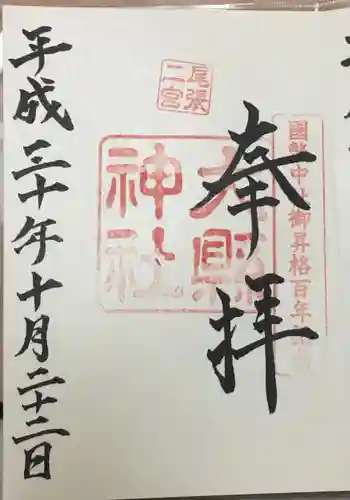 奉拝
國幣中社御昇格百年
尾張
二宮
大縣
神社
平成三十年十月二十二日